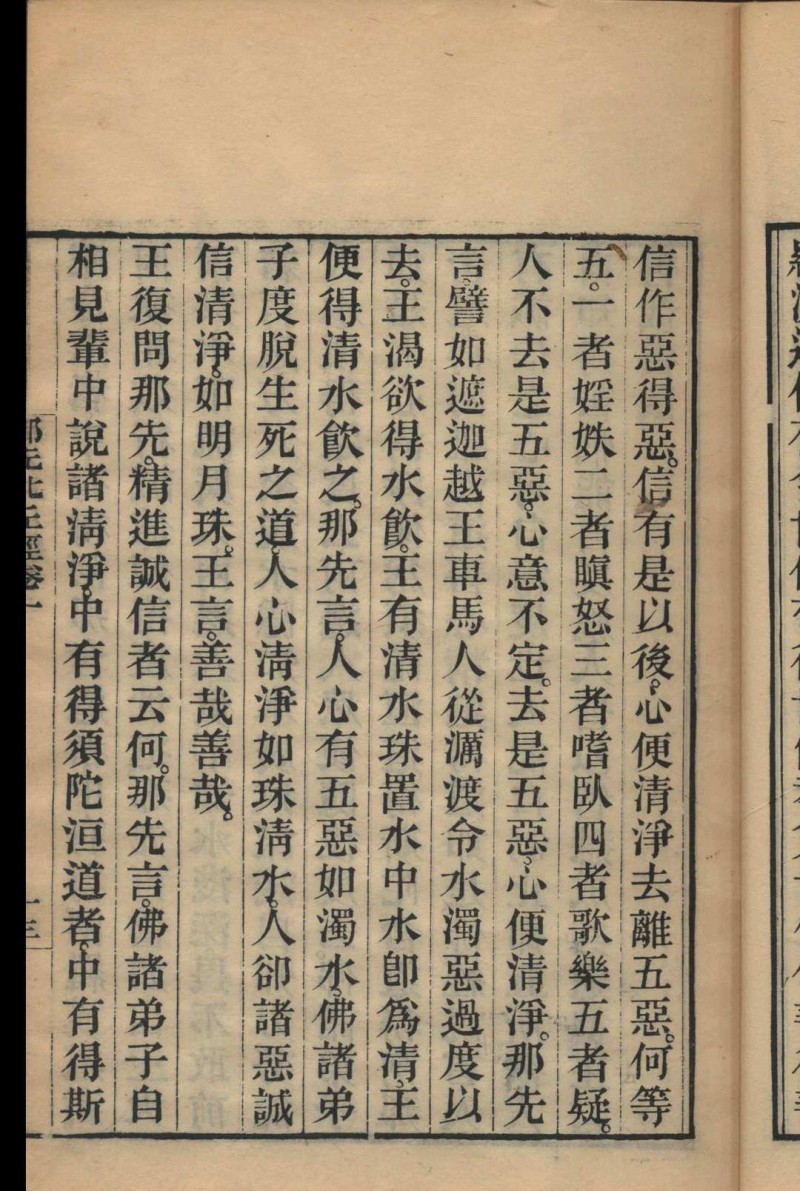 信作惡得惡。信有是以後、心便清淨去離五惡。何等
五。一者婬妷二者瞋怒三者嗜臥四者歌樂五者疑。
人不去是五惡、心意不定。去是五惡、心便清淨。那先
言、譬如遮迦越王車馬人從濿渡令水濁惡過度以
去。王渴欲得水飲。王有清水珠置水中水卽爲清、王
便得清水飲之。那先言、人心有五惡如濁水、佛諸弟
子度脫生死之道、人心淸淨如珠淸水、人卻諸惡誠
信清淨、如明月珠。王言。善哉善哉。
王復問那先。精進誠信者云何。那先言。佛諸弟子自
相見輩中說諸淸淨、中有得須陀洹道者、中有得斯
那先比丘經卷一
十三